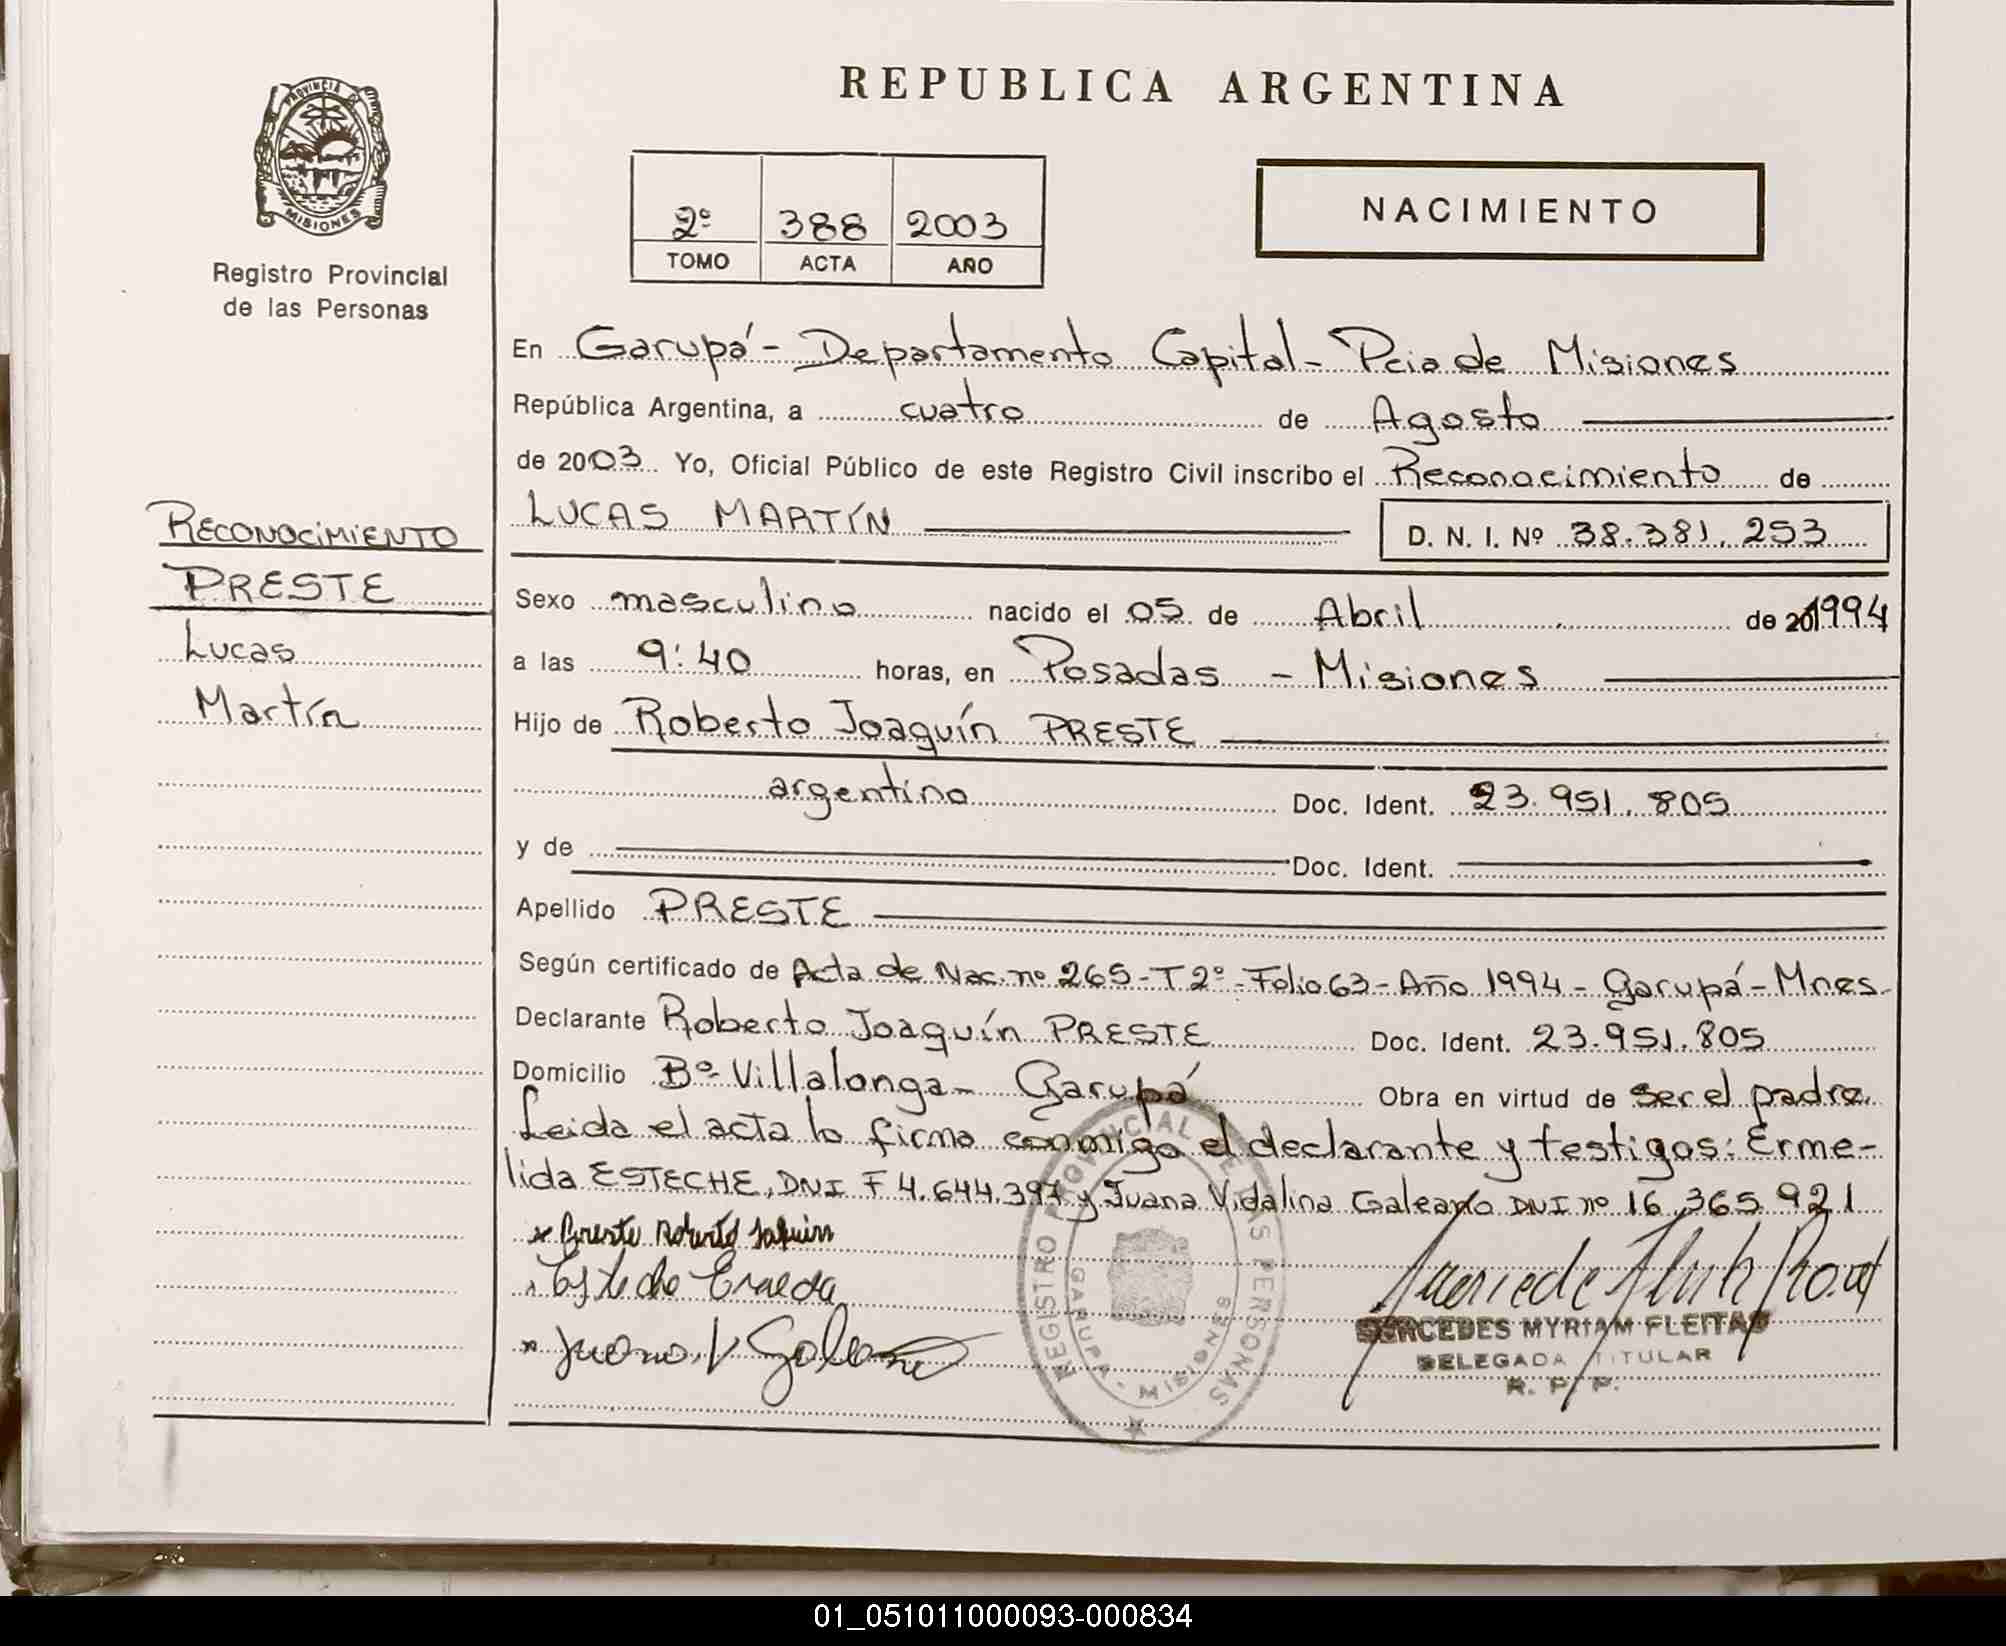 REPUBLICA ARGENTINA
PROVINCIA DE
MISIONES
Registro Provincial
de las Personas
2º 388 2003
TOMO ACTA AÑO
NACIMIENTO
En Garupá - Departamento Capital - Pcia de Misiones
República Argentina, a cuatro de Agosto
de 2003 Yo, Oficial Público de este Registro Civil inscribo el Reconocimiento de
LUCAS MARTÍN D. N. I. Nº 38.381.253
RECONOCIMIENTO
PRESTE
Lucas
Martín
Sexo masculino nacido el 05 de Abril de 201994
a las 9:40 horas, en Posadas - Misiones
Hijo de Roberto Joaquín PRESTE
argentino Doc. Ident. 23.951.805
y de Doc. Ident.
Apellido PRESTE
Según certificado de Acta de Nac. nº 265 - T 2º - Folio 63 - Año 1994 - Garupá - Mnes.
Declarante Roberto Joaquín PRESTE Doc. Ident. 23.951.805
Domicilio Bº Villalonga - Garupá Obra en virtud de ser el padre.
Leida el acta lo firma conmigo el declarante y testigos: Erme-
lida ESTECHE, DNI F 4.644.397 y Juana Vidalina Galeano DNI nº 16.365.921
x Preste Roberto Joaquin
x Juana V Galeano
REGISTRO PROVINCIAL DE LAS PERSONAS
GARUPA - MISIONES
MERCEDES MYRIAM FLEITAS
DELEGADA TITULAR
R. P. P.
01_051011000093-000834